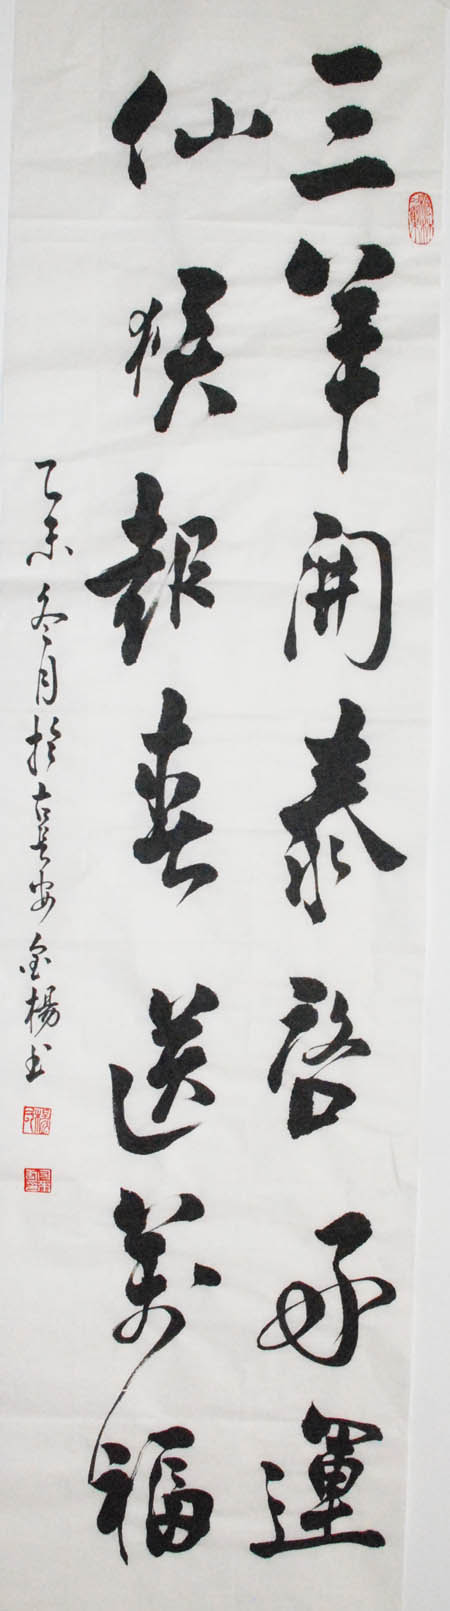 三羊開泰啓好運
仙猴報春送萬福
乙未冬月於古長安金楊書